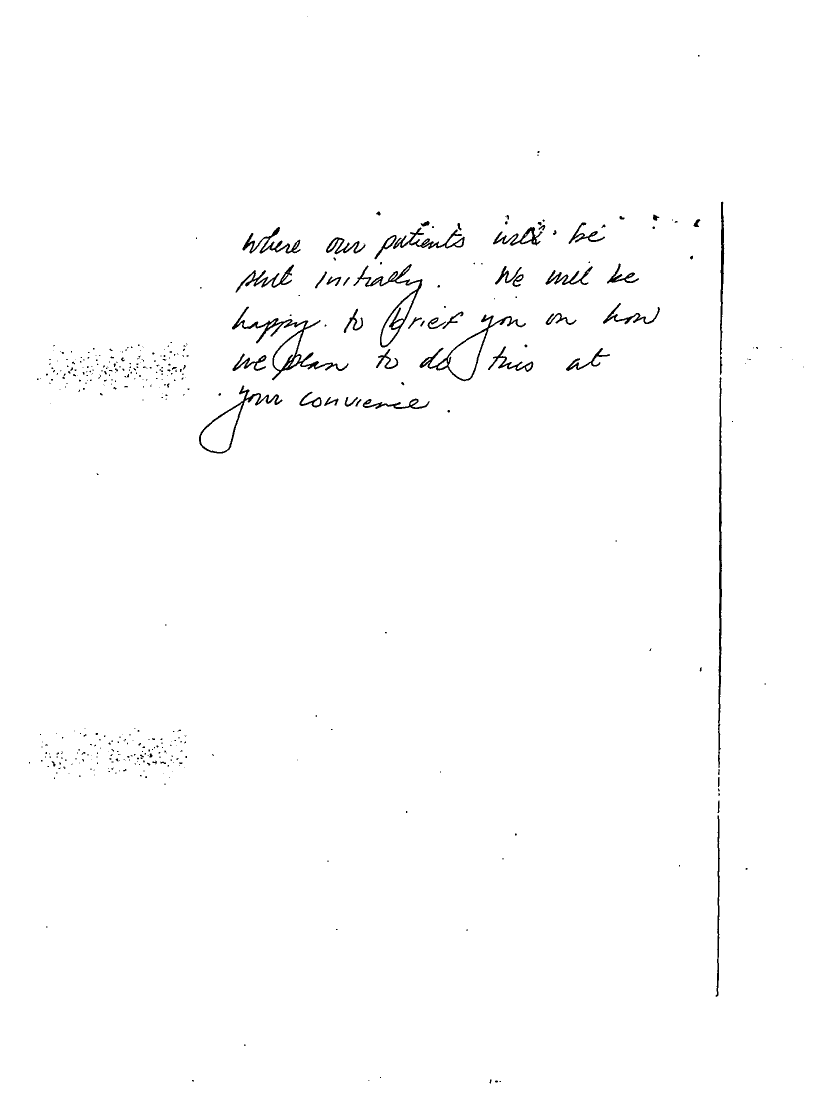 where our patients will be
sent initially. We will be
happy to brief you on how
we plan to do this at
your convience.